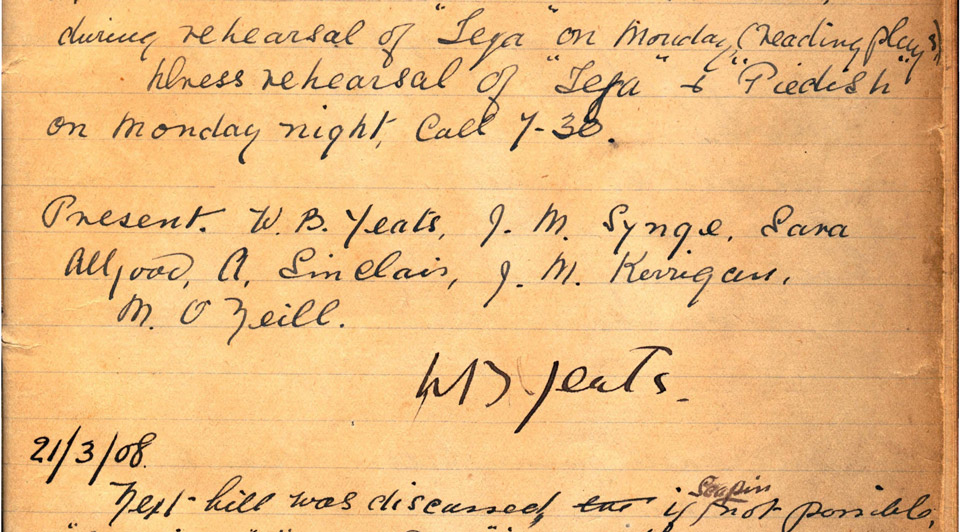 during rehearsal of "Teja" on Monday, (reading plays)
Dress rehearsal of "Teja" & "Piedish"
on Monday night, Call 7-30.
Present. W. B. Yeats, J. M. Synge, Sara
Allgood, A. Sinclair, J. M. Kerrigan,
M. O'Neill.
WB Yeats.
21/3/08.
Next bill was discussed, if Scapin not possible,